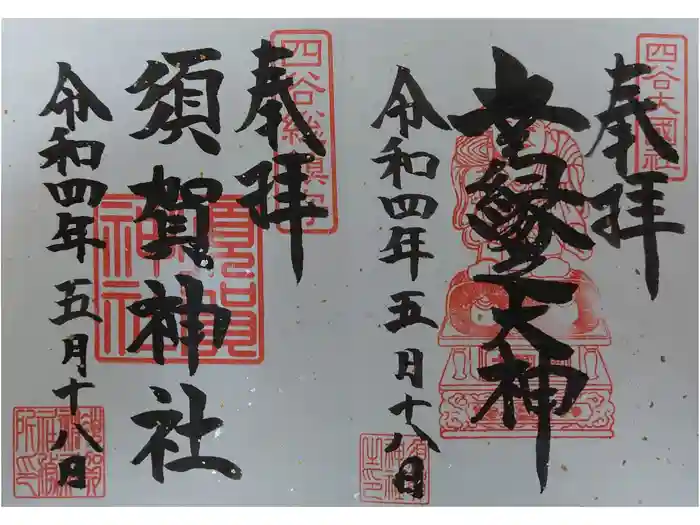 四谷大國社
奉拝
幸縁之大神
令和四年五月十八日
四谷総鎮守
奉拝
須賀神社
須賀神社
令和四年五月十八日